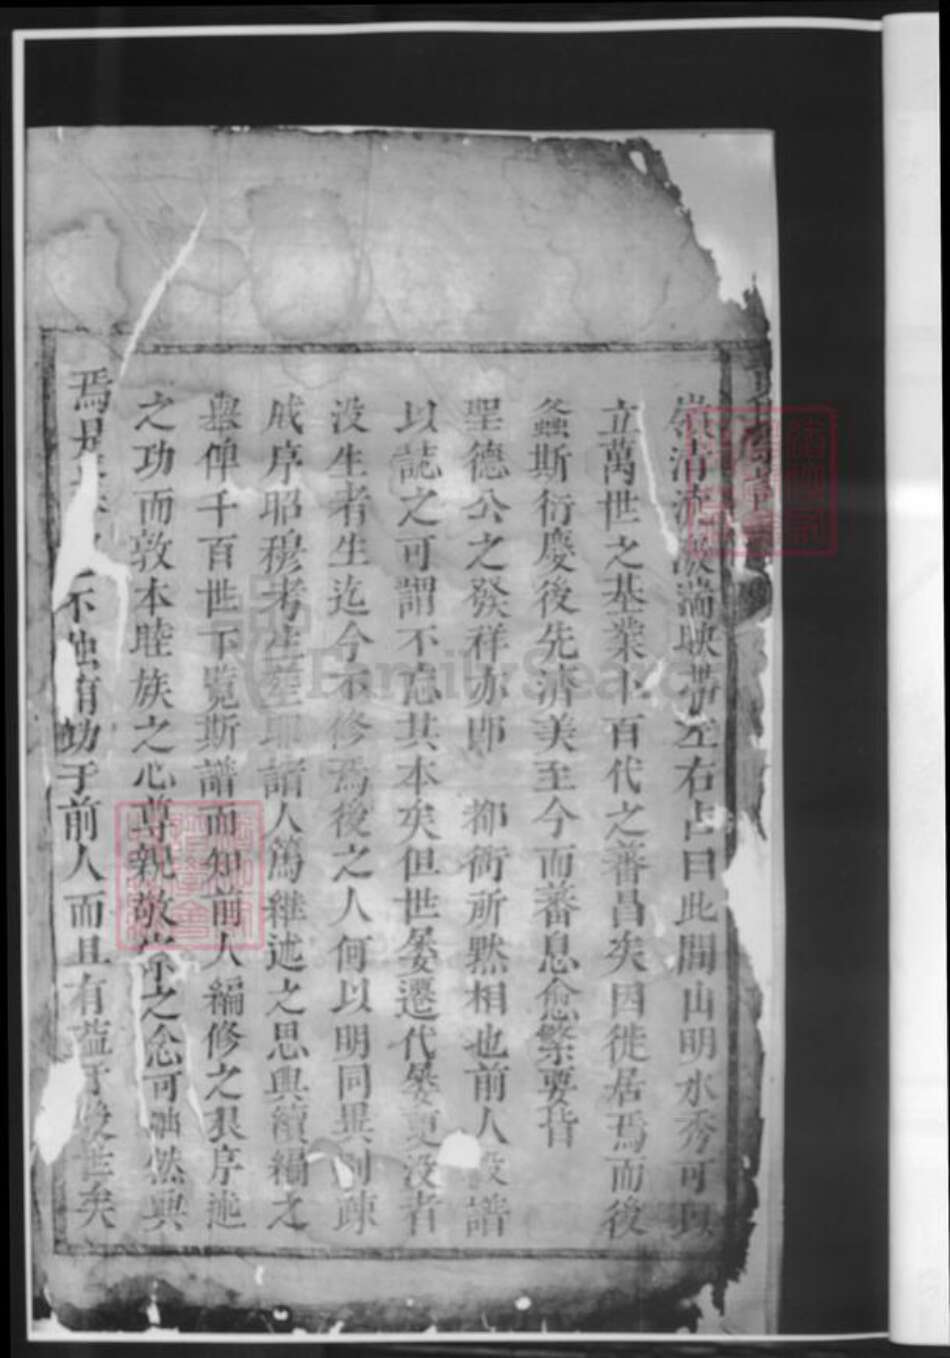 清流激湍映帶左右占曰此間山明水秀可以
立萬世之基業卜百代之蕃昌矣因徙居焉而後
螽斯衍慶後先濟美至今而蕃息愈繁要皆
聖德公之發祥亦即 所默相也前人設譜
以誌之可謂不忘其本矣但世屡遷代屡更没者
没生者生迄今不修焉後之人何以明同異別疎
戚序昭穆考生 耶諸人篤繼述之思興續編之
舉俾千百世下覧斯譜而知前人編修之 序述
之功而敦本睦族之心尊親敬宗之念可油然興
焉是 不独有功于前人而且有益于後世矣
FamilySearch